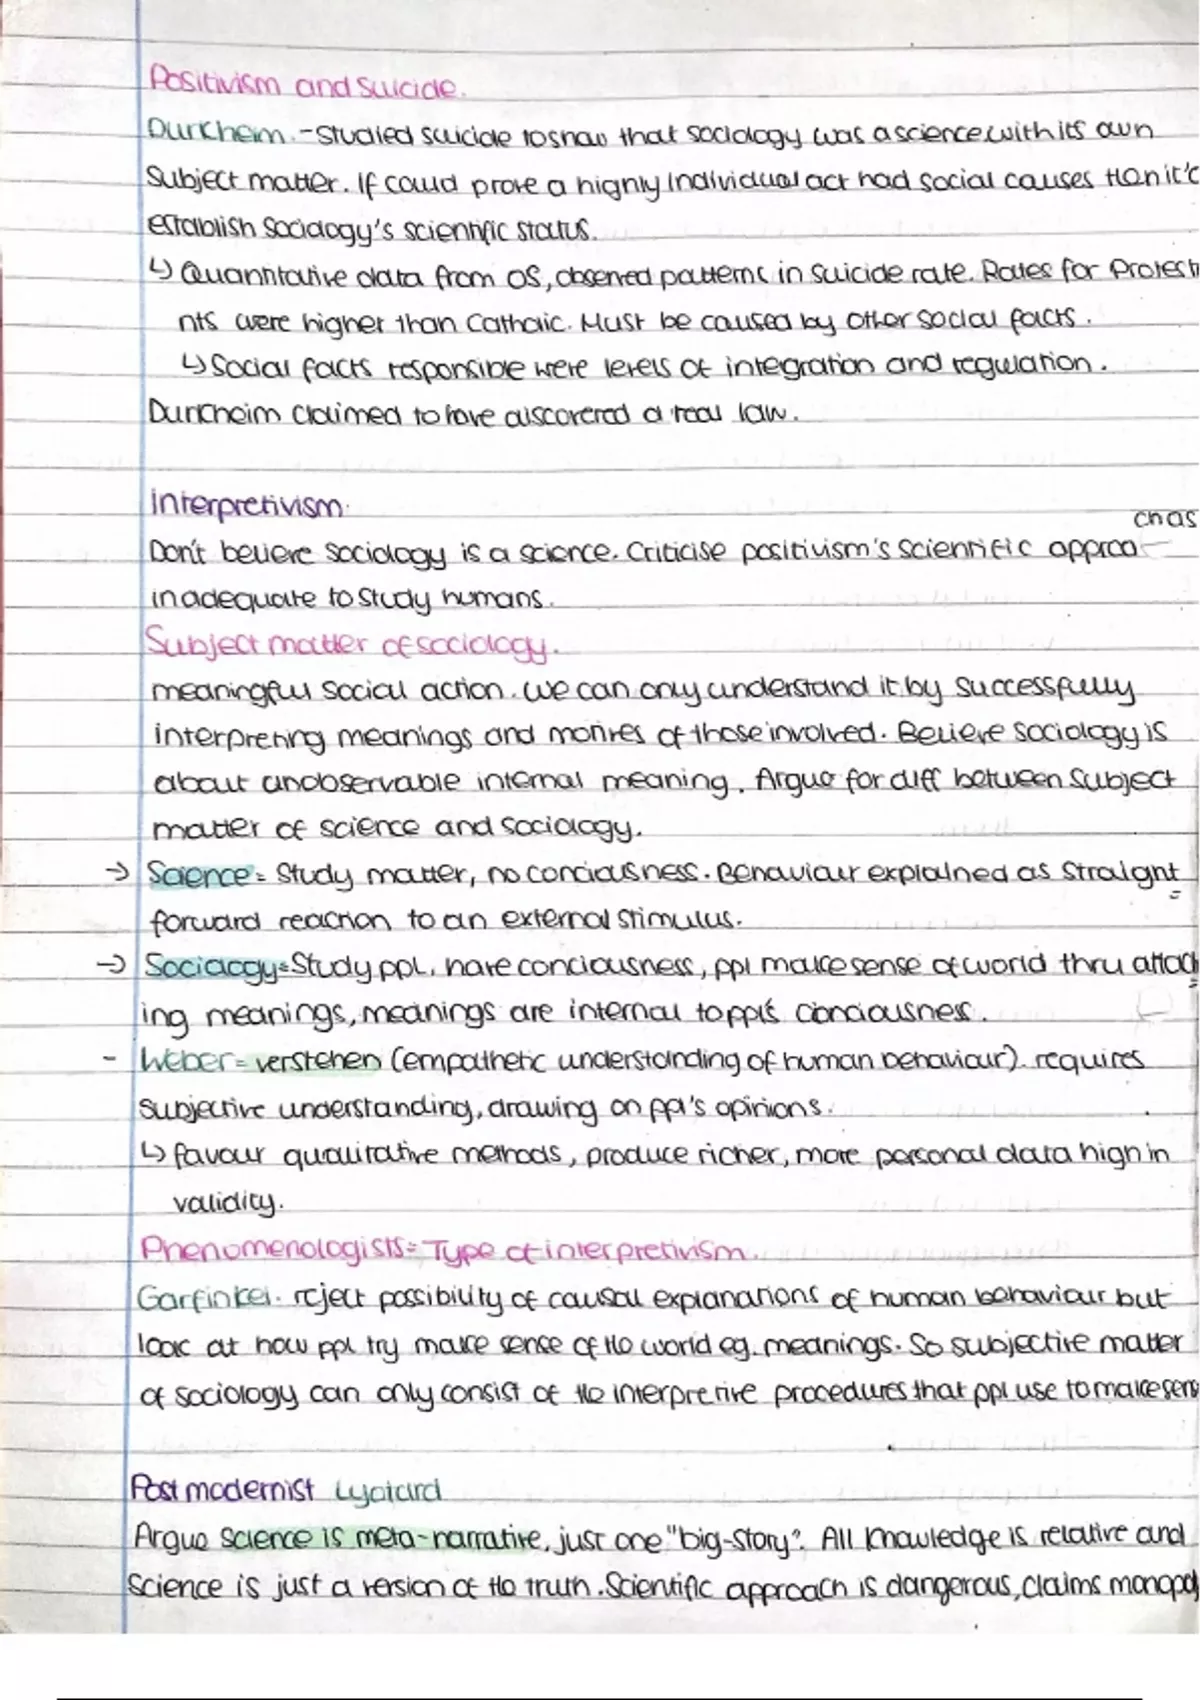 Positivism and suicide.
Durkheim. - Studied suicide to show that sociology was a science with its own
Subject matter. If could prove a highly individual act had social causes then it'd
establish Sociology's scientific status.
↳ Quantitative data from OS, observed patterns in suicide rate. Rates for Protesta
nts were higher than Catholic. Must be caused by other social facts.
↳ Social facts responsible were levels of integration and regulation.
Durkheim claimed to have discovered a real law.
Interpretivism.
ch as
Don't believe Sociology is a science. Criticise positivism's scientific approa
inadequate to study humans.
Subject matter of sociology.
meaningful social action. We can only understand it by successfully
interpreting meanings and motives of those involved. Believe sociology is
about unobservable internal meaning. Argue for diff between subject
matter of science and sociology.
→ Science = Study matter, no conciousness. Behaviour explained as straight
forward reaction to an external stimulus.
→ Sociology = Study ppl, have conciousness, ppl make sense of world thru attach
ing meanings, meanings are internal to ppl's conciousness.
- Weber = verstehen (empathetic understanding of human behaviour). requires
subjective understanding, drawing on ppl's opinions.
↳ favour qualitative methods, produce richer, more personal data high in
validity.
Phenomenologists = Type of interpretivism.
Garfinkel. reject possibility of causal explanations of human behaviour but
look at how ppl try make sense of the world eg. meanings. So subjective matter
of sociology can only consist of the interpretive procedures that ppl use to make sens
Postmodernist Lyotard
Argue science is meta-narrative, just one "big-story". All knowledge is relative and
science is just a version of the truth. Scientific approach is dangerous, claims monopol